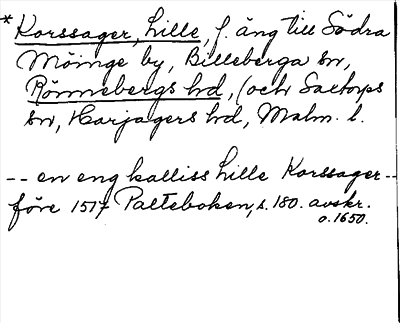 * Korssager, Lille, f. äng till Södra
Möinge by, Billeberga sn,
Rönnebergs hd, (och Saxtorps
sn, Harjagers hd, Malm. l.
-- en eng kalliss Lille Korssager --
före 1517 Palteboken, s. 180. avskr.
o. 1650.